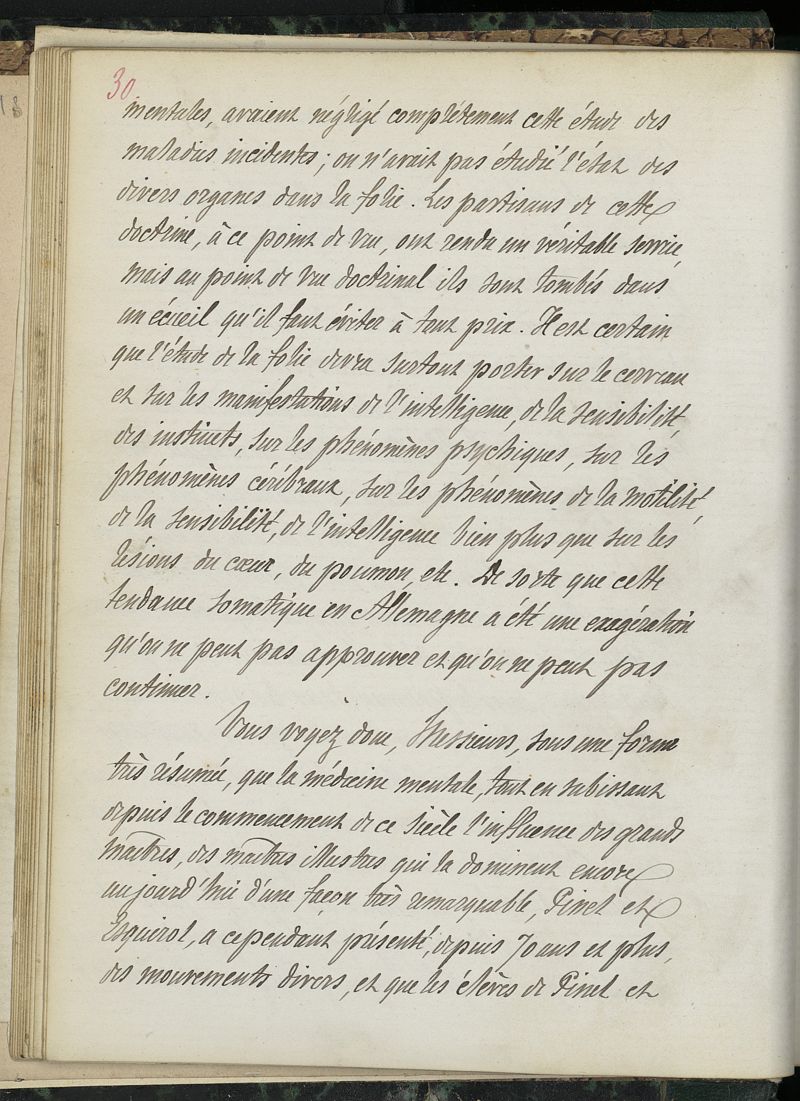 30
mentales, avaient négligé complètement cette étude des
maladies incidentes ; on n'avait pas étudié l'état des
divers organes dans la folie. Les partisans de cette
doctrine, à ce point de vue, ont rendu un véritable service,
mais au point de vue doctrinal ils sont tombés dans
un écueil qu'il faut éviter à tout prix. Il est certain
que l'étude de la folie devra surtout porter sur le cerveau
et sur les manifestations de l'intelligence, de la sensibilité,
des instincts, sur les phénomènes psychiques, sur les
phénomènes cérébraux, sur les phénomènes de la motilité,
de la sensibilité, de l'intelligence bien plus que sur les
lésions du cœur, du poumon, etc. De sorte que cette
tendance somatique en Allemagne a été une exagération
qu'on ne peut pas approuver et qu'on ne peut pas
continuer.
Vous voyez donc, Messieurs, sous une forme
très résumée, que la médecine mentale, tout en subissant
depuis le commencement de ce siècle l'influence des grands
maîtres, des maîtres illustres qui la dominent encore
aujourd'hui d'une façon très remarquable, Pinel et
Esquirol, a cependant présenté, depuis 70 ans et plus,
des mouvements divers, et que les élèves de Pinel et